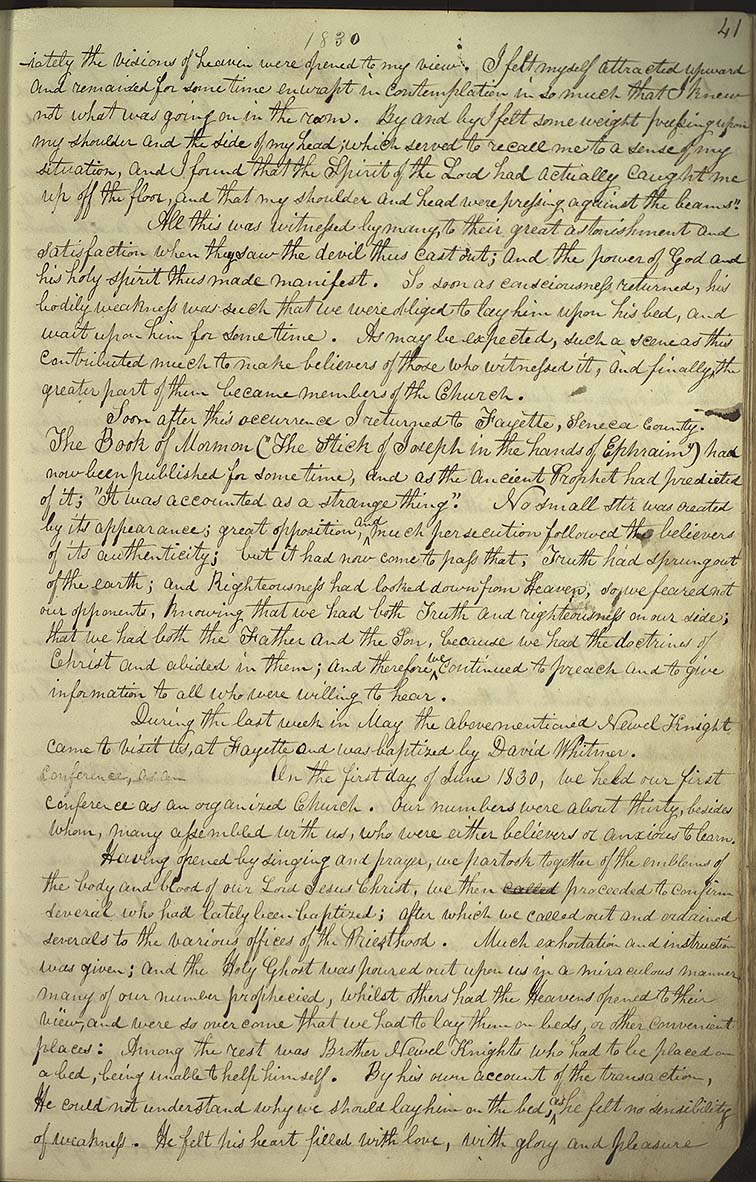 1830
41
iately the visions of heaven were opened to my view. I felt myself attracted upward
and remained for some time enwrapt in contemplation in so much that I knew
not what was going on in the room. By and by I felt some weight pressing upon
my shoulder and the side of my head; which served to recall me to a sense of my
situation, and I found that the Spirit of the Lord had actually caught me
up off the floor, and that my shoulder and head were pressing against the beams".
All this was witnessed by many, to their great astonishment and
satisfaction when they saw the devil thus cast out; and the power of God and
his holy spirit thus made manifest. So soon as consciousness returned, his
bodily weakness was such that we were obliged to lay him upon his bed, and
wait upon him for some time. As may be expected, such a scene as this
contributed much to make believers of those who witnessed it, and finally, the
greater part of them became members of the Church.
Soon after this occurrence I returned to Fayette, Seneca County.
The Book of Mormon ("The Stick of Joseph in the hands of Ephraim") had
now been published for some time, and as the ancient Prophet had predicted
of it; "It was accounted as a strange thing". No small stir was created
by its appearance; great opposition, and much persecution followed the believers
of its authenticity; but it had now come to pass that, Truth had sprung out
of the earth; and Righteousness had looked down from Heaven, so we feared not
our opponents, knowing that we had both Truth and righteousness on our side;
that we had both the Father and the Son, because we had the doctrines of
Christ and abided in them; and therefore we continued to preach and to give
information to all who were willing to hear.
During the last week in May the above mentioned Newel Knight
came to visit us, at Fayette and was baptized by David Whitmer.
conference, as an On the first day of June 1830, we held our first
conference as an organized Church. Our numbers were about thirty, besides
whom, many assembled with us, who were either believers or anxious to learn.
Having opened by singing and prayer, we partook together of the emblems of
the body and blood of our Lord Jesus Christ, we then called proceeded to confirm
several who had lately been baptized; after which we called out and ordained
severals to the various offices of the Priesthood. Much exhortation and instruction
was given; and the Holy Ghost was poured out upon us in a miraculous manner
many of our number prophecied, whilst others had the Heavens opened to their
view, and were so over come that we had to lay them on beds, or other convenient
places: Among the rest was Brother Newel Knights who had to be placed on
a bed, being unable to help himself. By his own account of the transaction,
He could not understand why we should lay him on the bed, as he felt no sensibility
of weakness. He felt his heart filled with love, with glory and pleasure